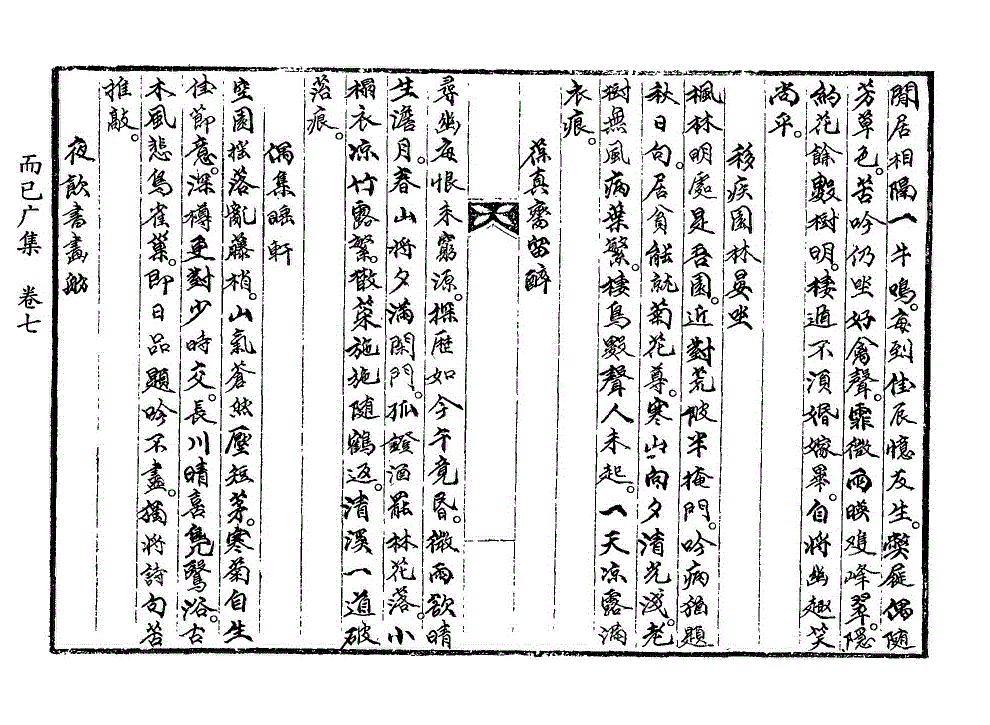 閒居相隔一牛鳴。每到佳辰憶友生。蠟屐偶隨
芳草色。苦吟仍坐好禽聲。霏微雨暎雙峰翠。隱
約花餘數樹明。棲遁不須婚嫁畢。自將幽趣笑
尚平。
移疾園林晏坐
楓林明處是吾園。近對荒陂半掩門。吟病猶題
秋日句。居貧能就菊花尊。寒山向夕清光淺。老
樹無風病葉繁。棲鳥數聲人未起。一天凉露滿
衣痕。
葆真齋留醉
尋幽每恨未窮源。探歷如今午竟昏。微雨欲晴
生澹月。春山將夕滿閑門。孤鐙酒罷林花落。小
榻衣凉竹露繁。散菜施施随鶴返。清溪一道破
落痕。
偶集暗軒
空園搖落亂藤梢。山氣蒼然壓短茅。寒菊自生
佳節意。深樽更對少時交。長川晴喜鳧鷖浴。古
木風悲鳥雀巢。即日品題吟不盡。獨將詩句苦
推敲。
夜飲書畫舫
而已广集 卷七